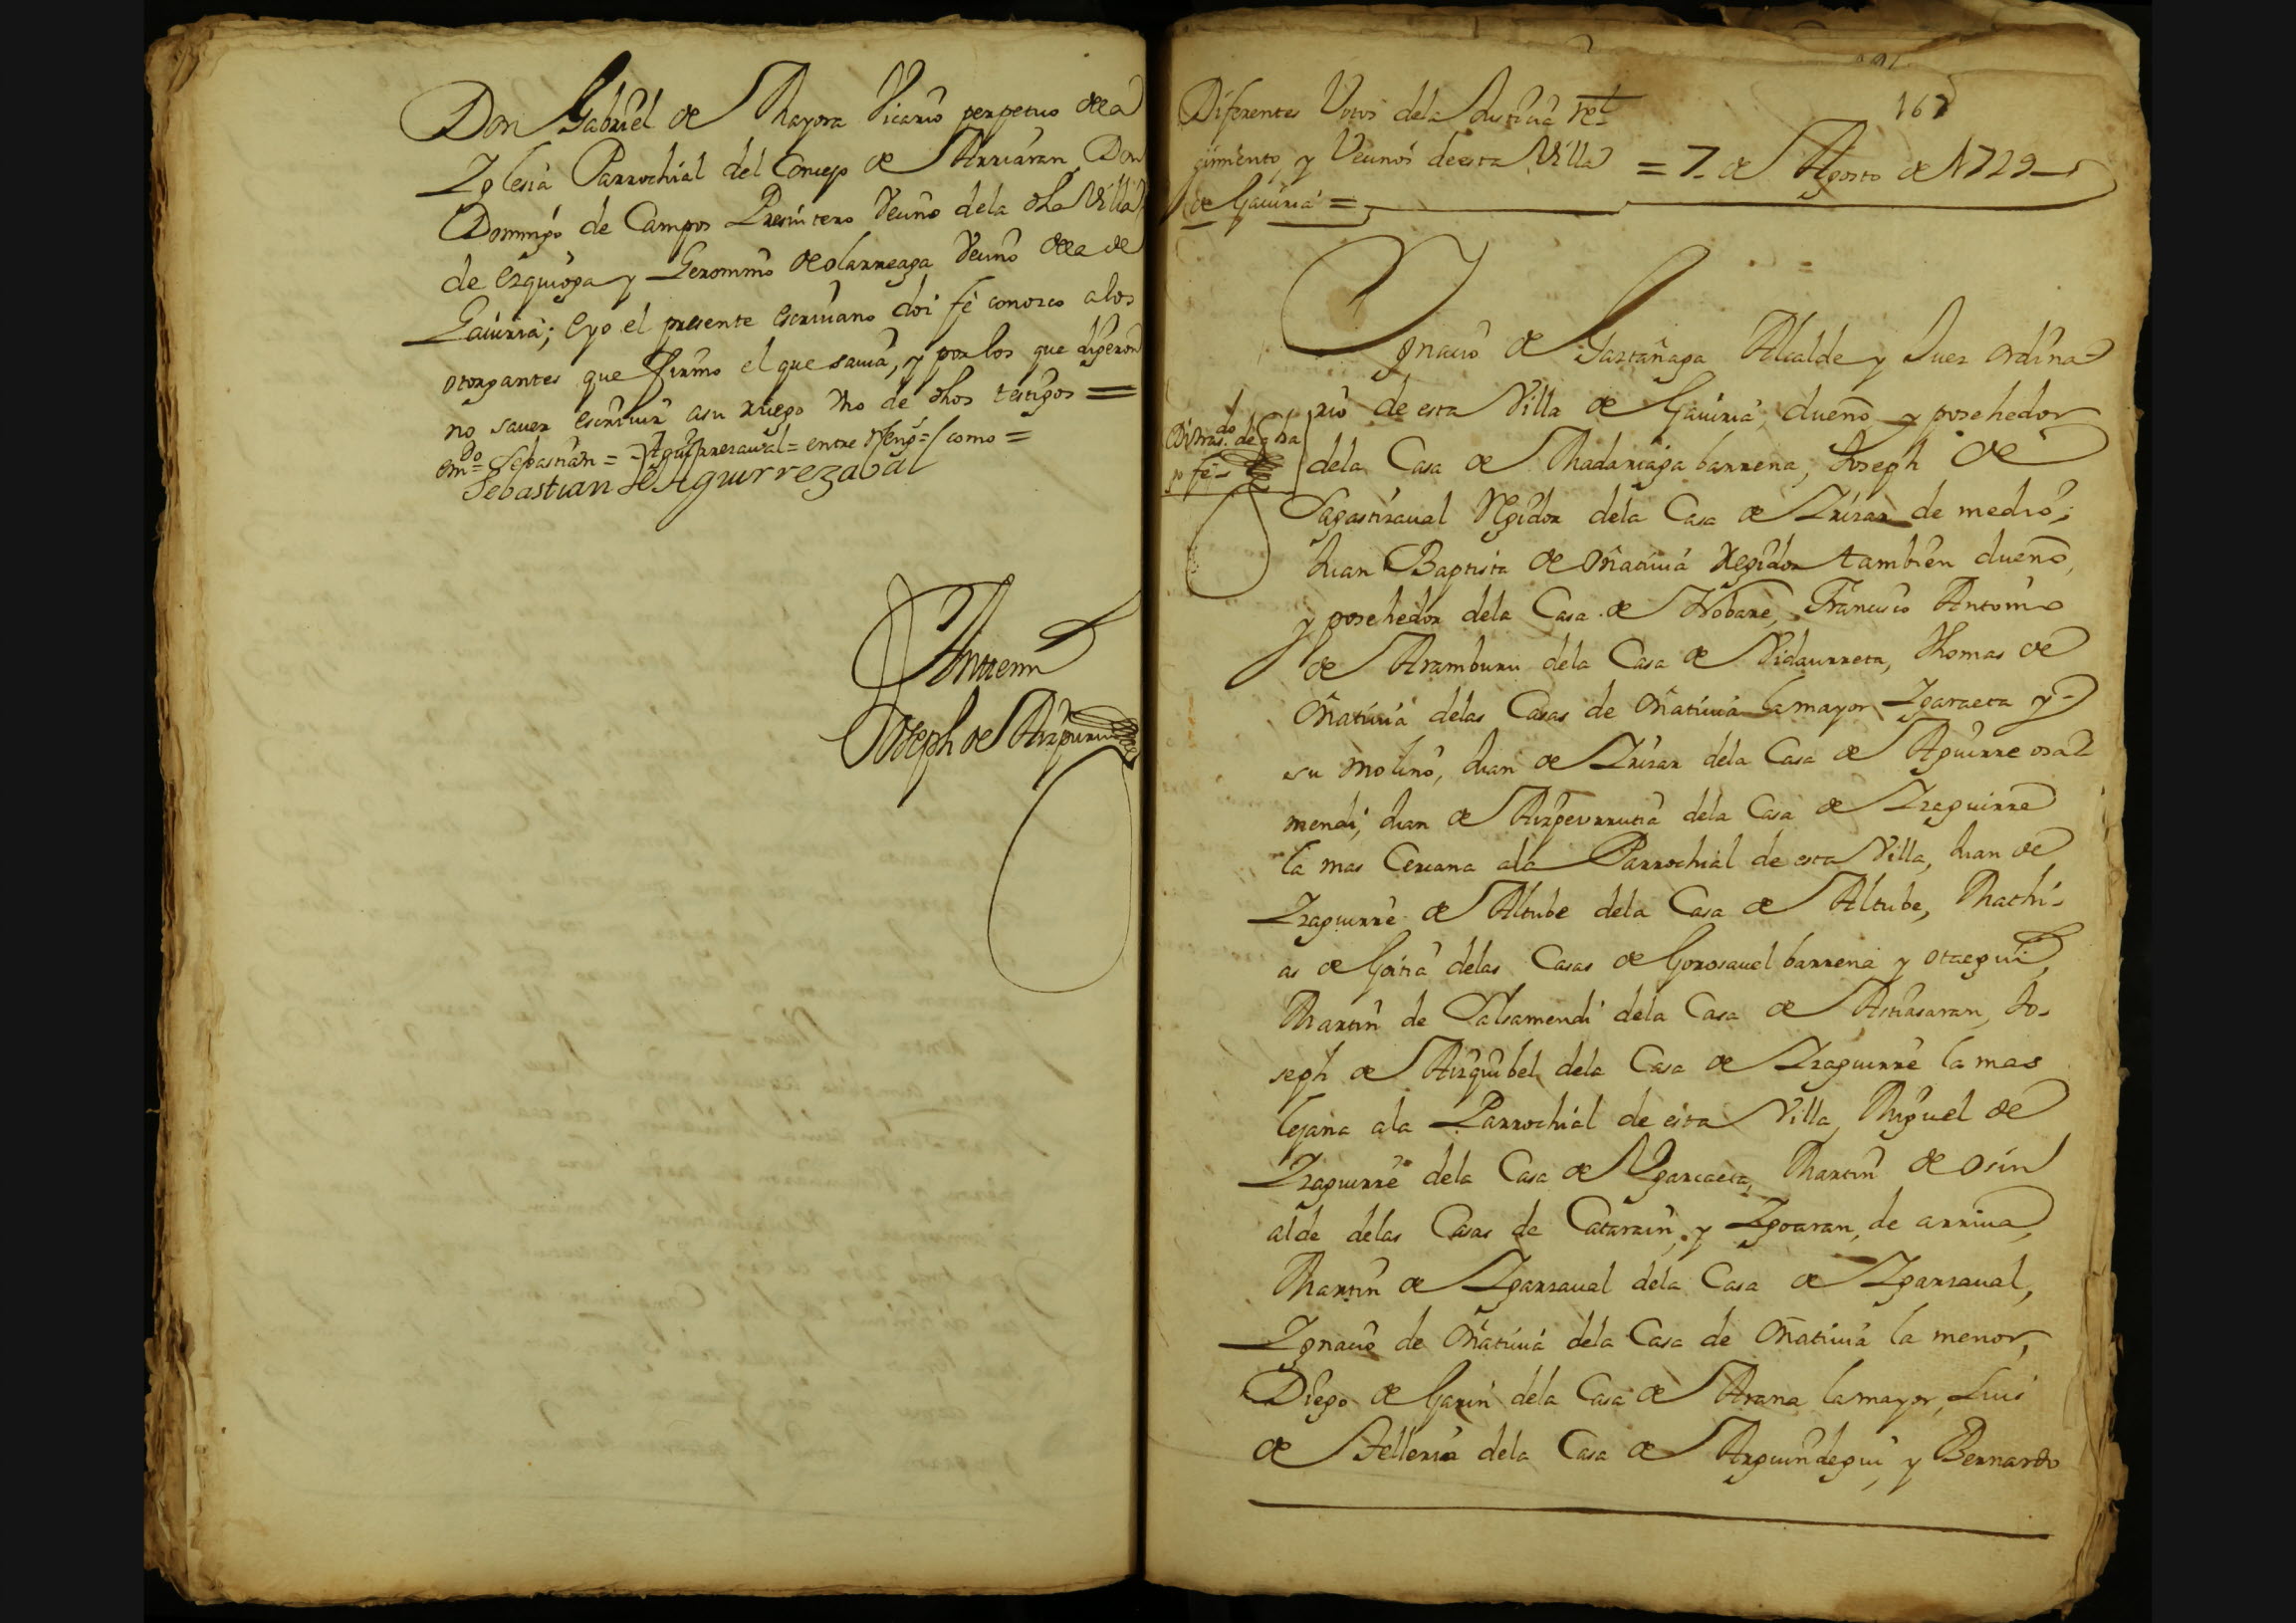 Don Gabriel de Mayora Vicario perpetuo dela
Iglesia Parrochial del Concejo de Arriaran, Don
Domingo de Campos Presuitero vecino dela dha Villa
de Ezquioga y Geronimo de olarreaga vecino dela de
Gaviria; e yo el presente escrivano doi fe conosco alos
otorgantes que firmo el que savia, y por los que digeron
no saver escrivir asu ruego vno de dhos testigos =
emdo = Sebastian = Aguirresaval = entre Reng.s = como =
Sebastian de Aguirrezabal
Antemi
Joseph de Aizpuru
167
Diferentes Votos dela Justicia Re
gimiento, y Vecinos de esta Villa = 7 de Agosto de 1729
de Gaviria =
Ignacio de Gastañaga Alcalde y Juez ordina-
rio de esta Villa de Gaviria, dueño y posehedor
dela Casa de Madariaga barrena, Joseph de
Sagastisaval Regidor dela Casa de Irizar de medio;
Juan Baptista de Oñativia Regidor tambien dueño,
y posehedor dela Casa de Vrobare, Francisco Antonio
de Aramburu dela Casa de Vidaurreta, Thomas de
Oñativia delas Casas de Oñativia la mayor Igaraeta y
su molino, Juan de Irizar dela Casa de Aguirre osa
mendi, Juan de Aizpeurrutia dela Casa de Izaguirre
la mas Cercana ala Parrochial de esta Villa, Juan de
Izaguirre de Altube dela Casa de Altube, Mathi-
as de Goitia delas Casas de Gorosavel barrena y otaegui,
Martin de Salsamendi dela Casa de Astiasaran, Jo-
seph de Aizquibel dela Casa de Izaguirre la mas
lejana ala Parrochial de esta Villa, Miguel de
Izaguirre dela Casa de Vgarcaeta, Martin de osin
alde delas Casas de Catarain, y Igoaran, de arriva,
Martin de Igarzaval dela Casa de Igarzaval,
Ignacio de Oñativia dela Casa de Oñativia la menor,
Diego de Garin dela Casa de Arana la mayor, Luis
de Telleria dela Casa de Arguindegui, y Bernardo